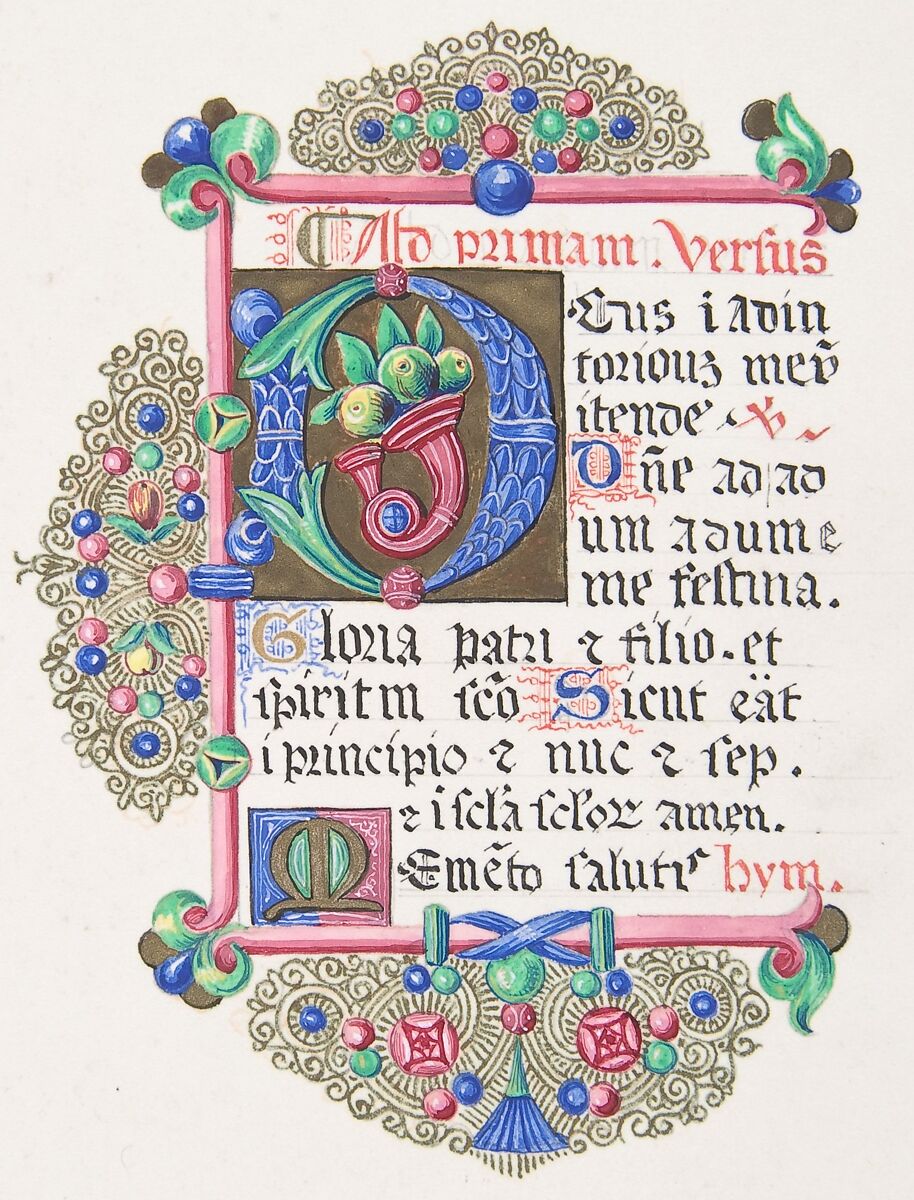 Ad primam. Versus
DEus i adiu
toriouz meū
itende. R.
Dñe ad ad
um adiume
me festina.
Gloria patri ⁊ filio. et
spiritui scō Sicut eāt
i principio ⁊ nuc ⁊ sep.
⁊ i scl'a scl'oꝝ amen.
MEmēto salutis hym.